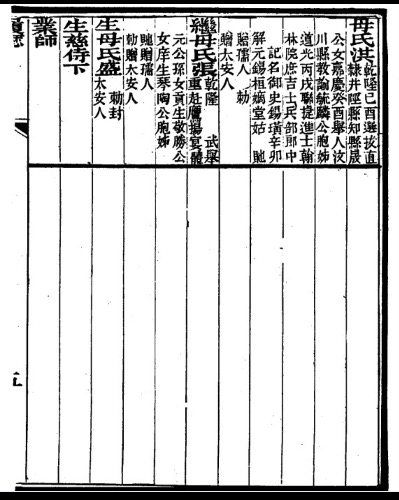 母氏洪乾隆己酉選拔直
隸井陘縣知縣晟
公女嘉慶癸酉舉人汶
川縣教諭毓麟公胞姊
道光丙戌聯捷進士翰
林院庶吉士兵部郎中
記名御史錫璜辛卯
解元錫桓嫡堂姑 貤
贈孺人 勅
贈太安人
繼母氏張乾隆 武舉
重赴鷹揚宴體
元公孫女貢生敬勝公
女庠生琴陶公胞姊
貤贈孺人
勅贈太安人
生母氏盛 勅封
太安人
生慈侍下
業師
五